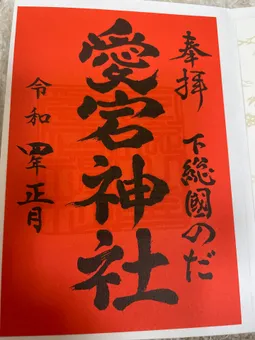 奉拝
下総國のだ
愛宕神社
令和四年正月